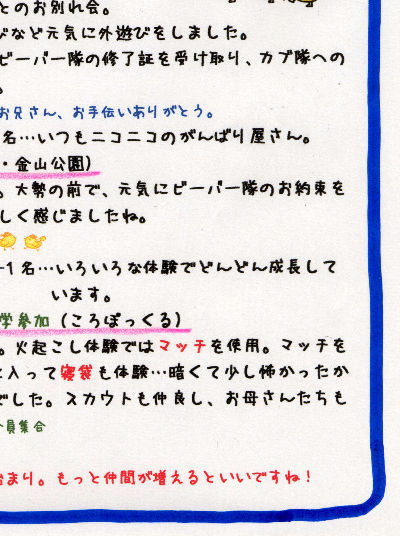 とのお別れ会。
びなど元気に外遊びをしました。
ビーバー隊の修了証を受け取り、カブ隊への
。
お兄さん、お手伝いありがとう。
名…いつもニコニコのがんばり屋さん。
・金山公園)
。大勢の前で、元気にビーバー隊のお約束を
しく感じましたね。
1名…いろいろな体験でどんどん成長して
います。
学参加(ころぽっくる)
。火起こし体験ではマッチを使用。マッチを
に入って寝袋も体験…暗くて少し怖かったか
でした。スカウトも仲良し、お母さんたちも
員集合
始まり。もっと仲間が増えるといいですね!